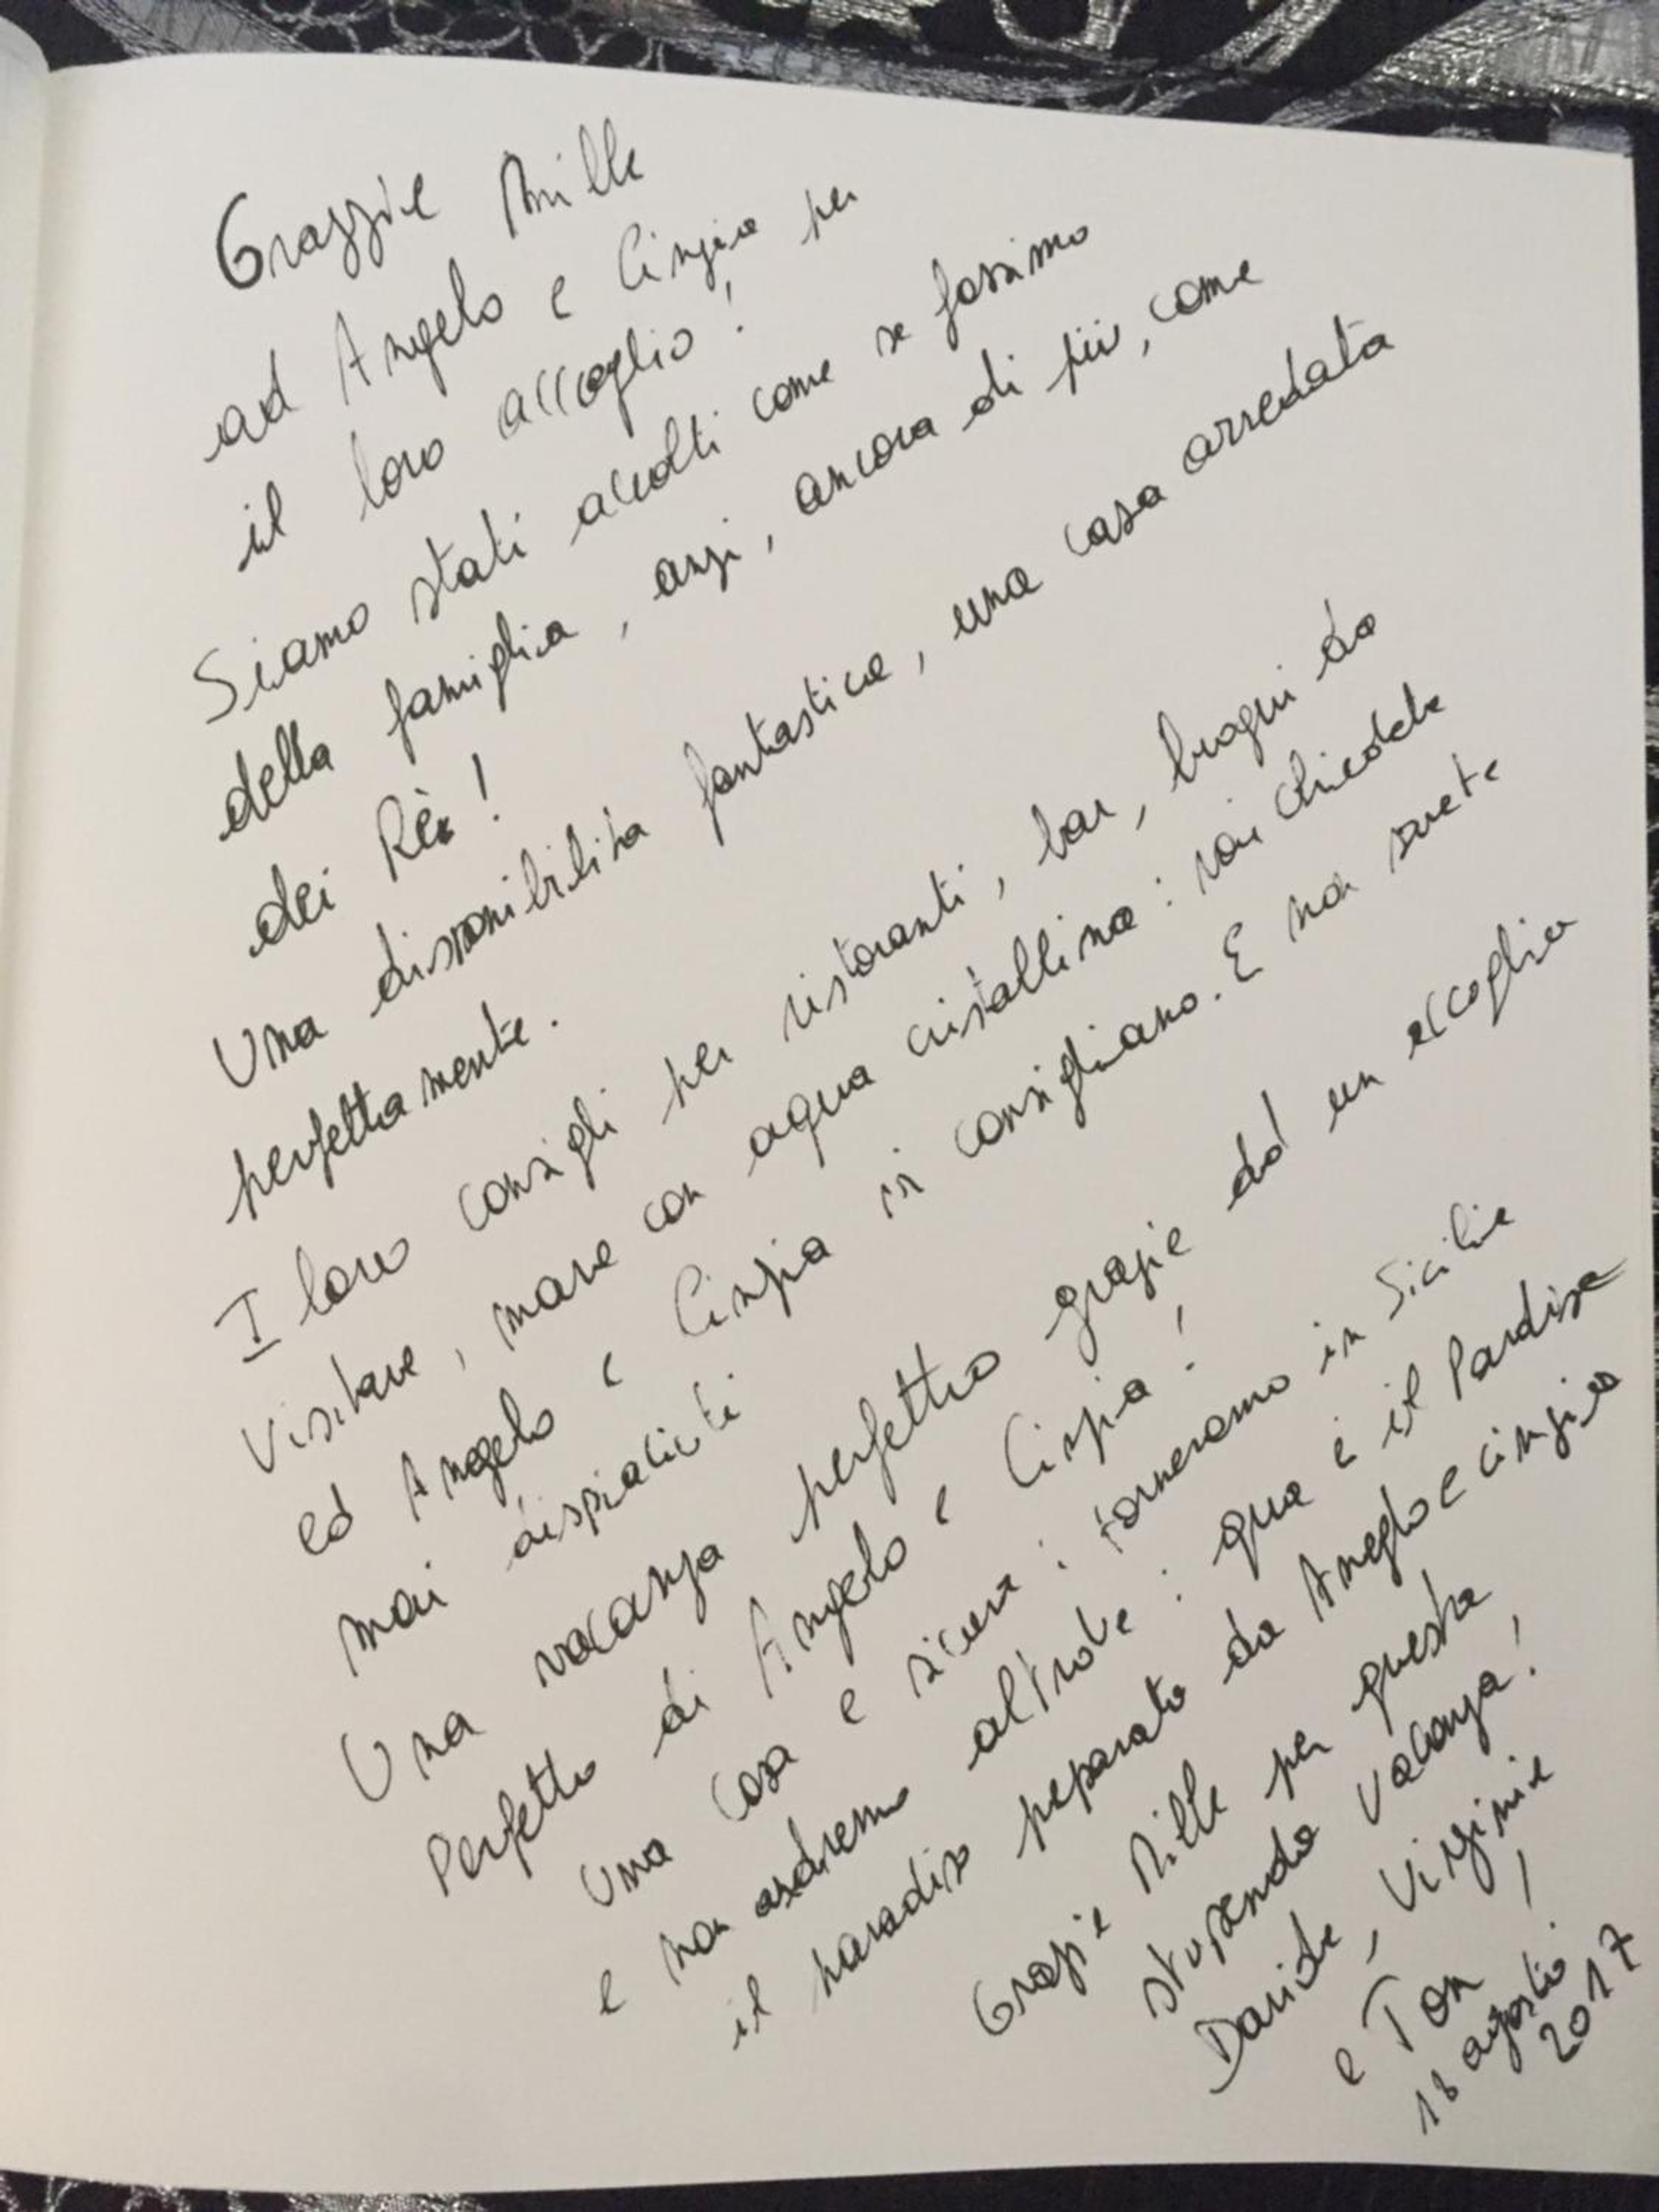 Grazzie Mille
ad Angelo e Cinzia per
il loro accoglio!
Siamo stati accolti come se fossimo
della famiglia, anzi, ancora di più, come
dei Rè!
Una disponibilita fantastica, una casa arredata
perfettamente.
I loro consigli per ristoranti, bar, luoghi da
visitare, mare con aqua cristallina: voi chiedete
ed Angelo e Cinzia vi consigliano. E non sarete
mai dispiaciuti
Una vacanza perfetta grazie ad un accoglio
Perfetto di Angelo e Cinzia!
Una cosa e sicura: torneramo in Sicilia
e non andremo altrove: qua è il Pardiso
il paradiso preparato da Aneglo e Cinzia
Grazie Mille per questa
stupenda vacanza!
Davide, Virginie
e Tom!
18 agosto
2017